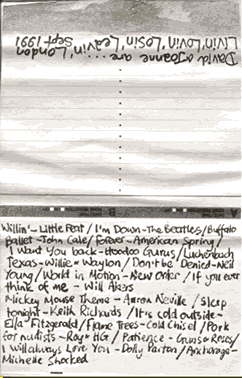 David & Joanne are ....,
Livin', Lovin', Losin', Leavin', London
Sept 1991
B
A
Willin' - Little Feat / I'm Down - The Beatles / Buffalo
Ballet - John Cale / Forever - American Spring /
I Want You back - Hoodoo Gurus / Luchenbach
Texas - Willie & Waylon / Don't be Denied - Neil
Young / World in Motion - New Order / If you ever
think of me - Will Akers
Mickey Mouse Theme - Aaron Neville / Sleep
tonight - Keith Richards / It's cold outside -
Ella Fitzgerald / Flame Trees - Cold Chisel / Pork
for nudists - Ray & HG / Patience - Guns & Roses /
I will always Love You - Dolly Parton / Anchorage -
Michelle Shocked